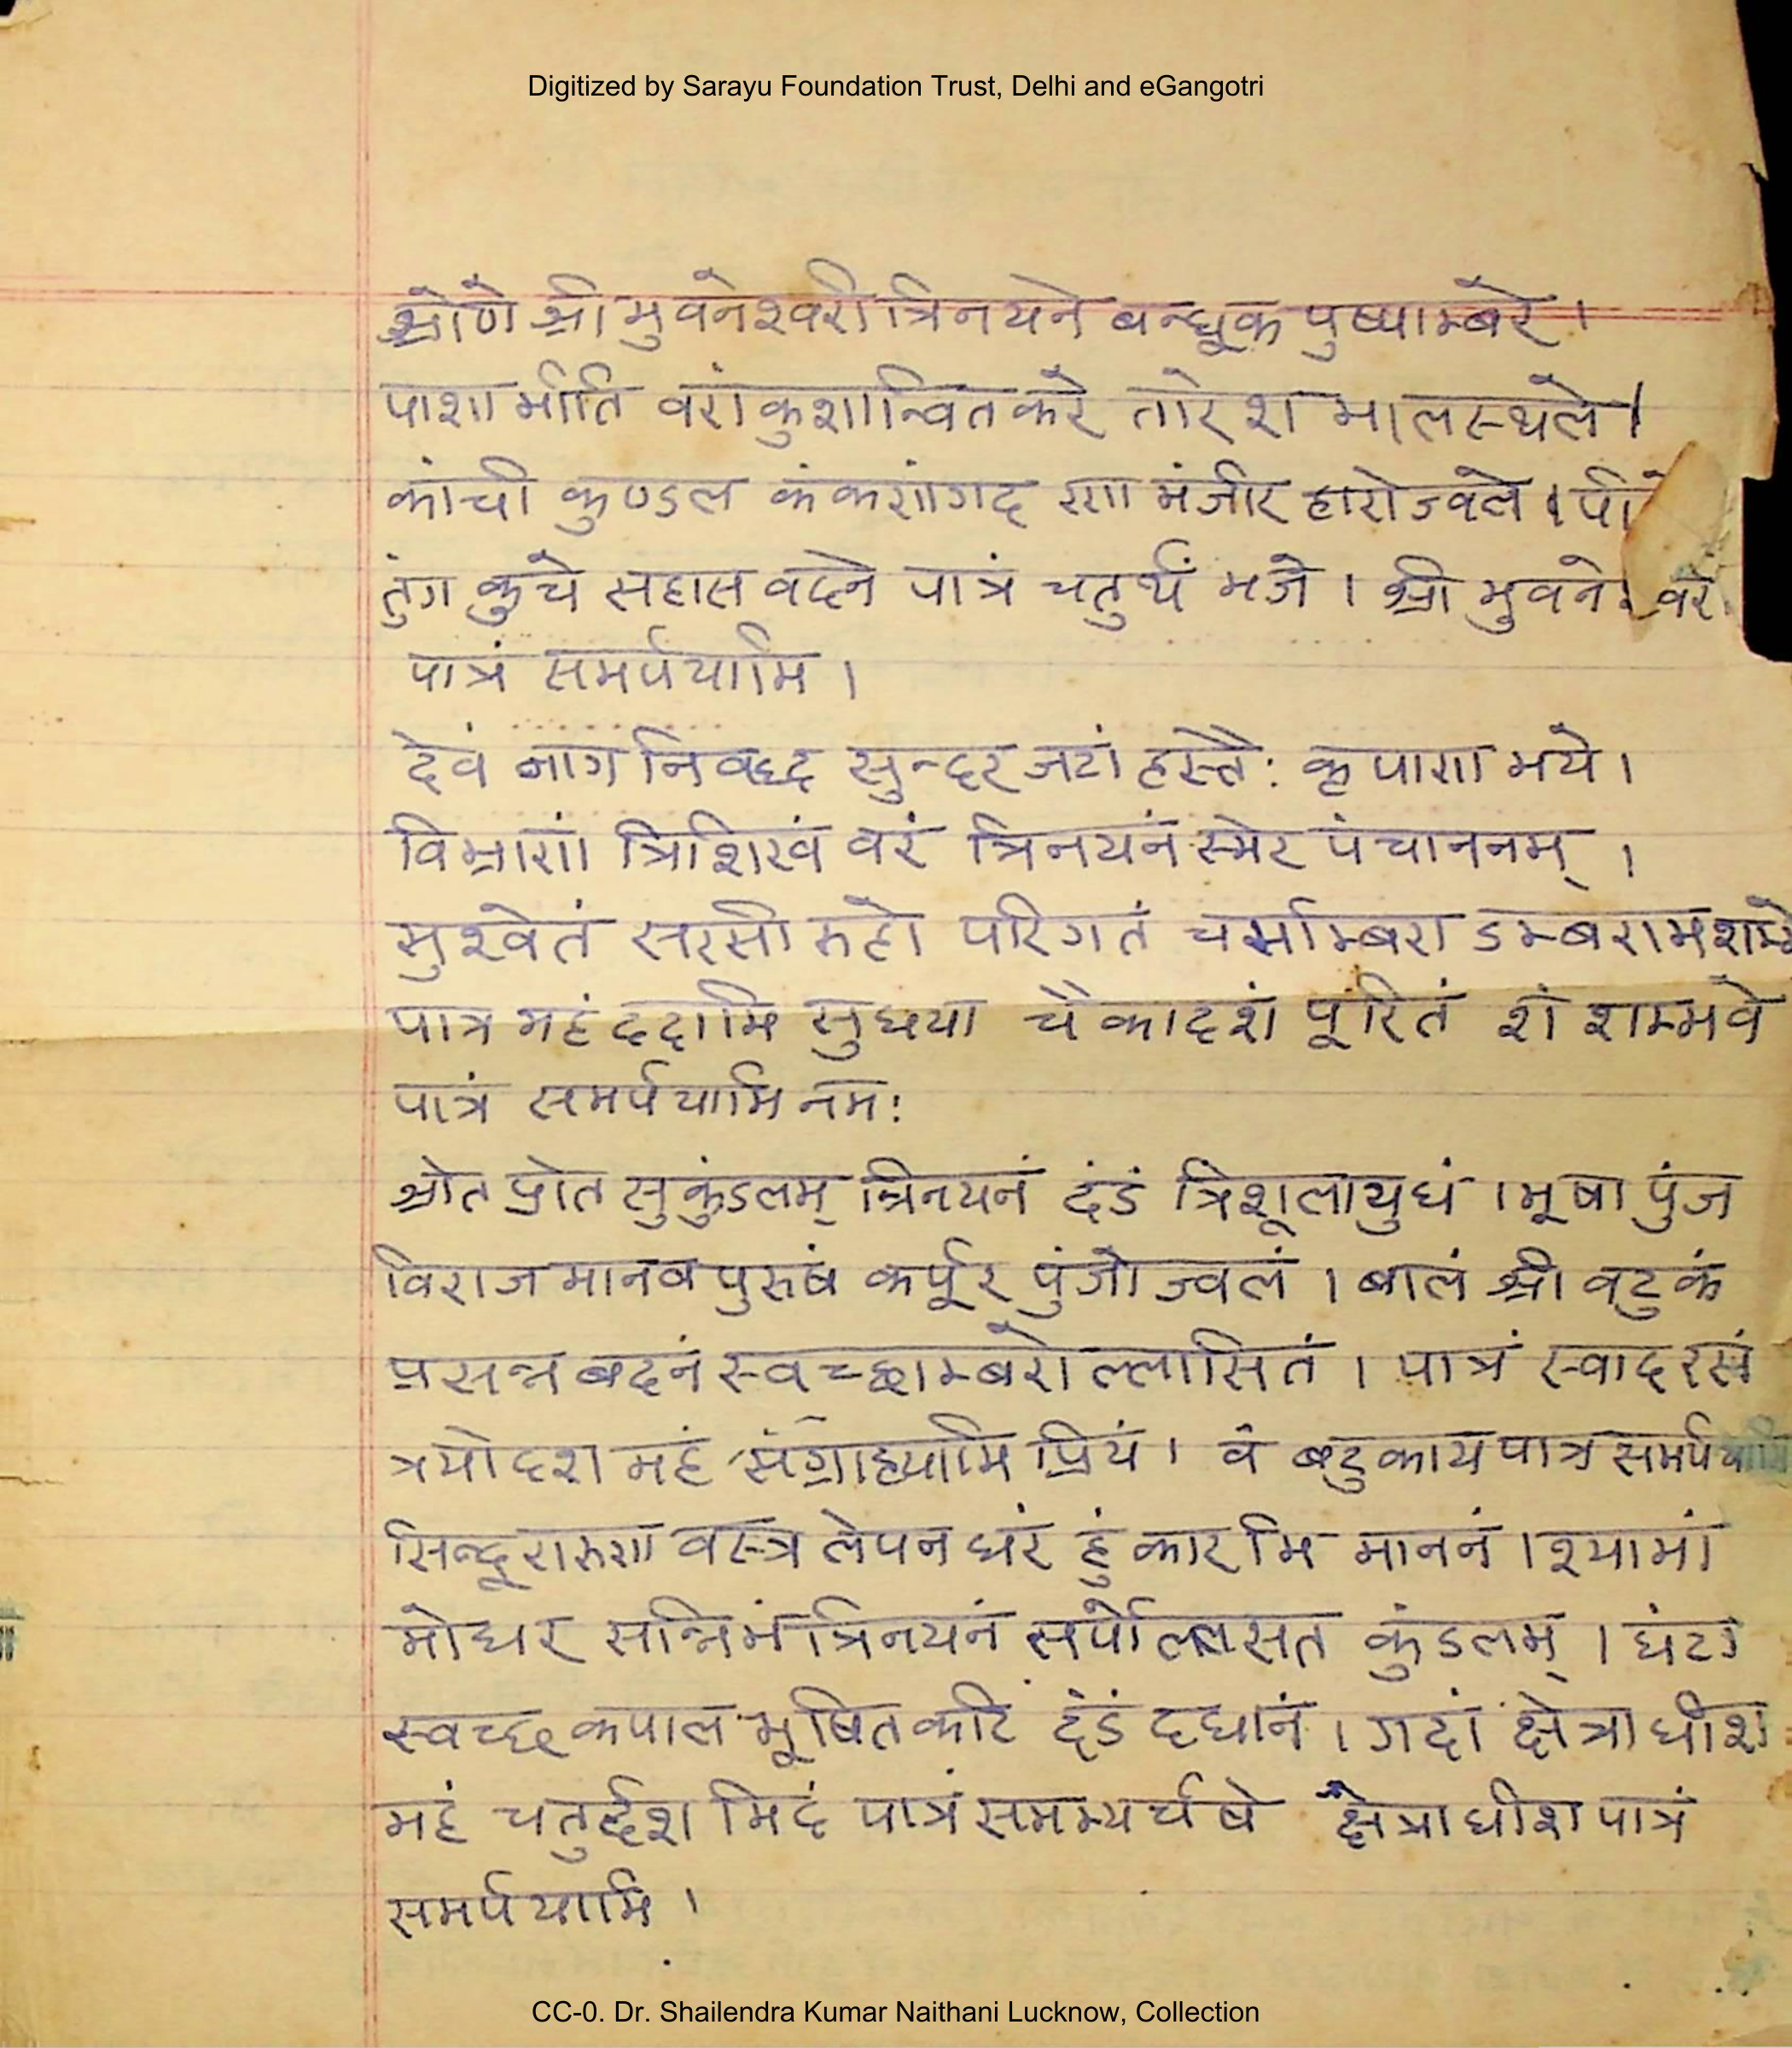 Digitized by Sarayu Foundation Trust, Delhi and eGangotri
श्रोणे श्री भुवनेश्वरी त्रिनयने बन्धूक पुष्पाम्बरे ।
पाशा भीति वरांकुशान्वित करे तारेश भालस्थले ।
कांची कुण्डल कंकणांगद रणा मंजीर हारोज्वले ।
तुंग कुचे सहास वदने पात्रं चतुर्थं भजे । श्री भुवनेश्वरी
पात्रं समर्पयामि ।
देवं नाग निवद्ध सुन्दर जटां हस्तैः कृपाणा भये ।
विभ्राणां त्रिशिखं वरं त्रिनयनं स्मेर पंचाननम् ।
सुश्वेतं सरसी रुहो परिगतं चर्माम्बरा डम्बराम
पात्र महं ददामि सुधया चैकादशं पूरितं शं शम्भवे
पात्रं समर्पयामि नमः
श्रोत प्रोत सुकुंडलम् त्रिनयनं दंडं त्रिशूलायुधं । भूषा पुंज
विराजमानव पुरुषं कर्पूर पुंजोज्वलं । बालं श्री वटुकं
प्रसन्न बदनं स्वच्छाम्बरोल्लासितं । पात्रं स्वादरसं
त्रयोदश महं संग्राहयामि प्रियं । वं बटुकाय पात्र समर्पयामि
सिन्दूरारुणा वस्त्र लेपन धरं हुं कार मि माननं । श्यामां
मोधर सन्निभं त्रिनयनं सर्पोल्लसत कुंडलम् । घंटा
स्वच्छ कपाल भूषित कटिं दंडं दधानं । गदां क्षेत्राधीश
महं चतुर्द्दश मिदं पात्रं समभ्यर्चषे क्षेत्राधीश पात्रं
समर्पयामि ।
CC-0. Dr. Shailendra Kumar Naithani Lucknow, Collection